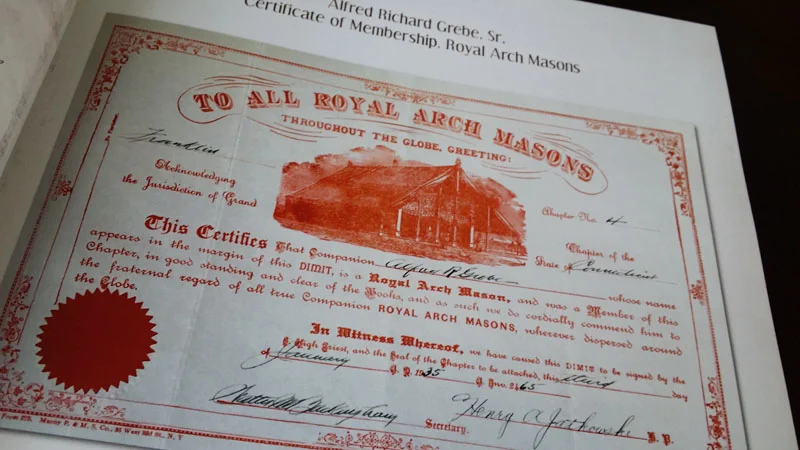 Alfred Richard Grebe, Sr.
Certificate of Membership, Royal Arch Masons
TO ALL ROYAL ARCH MASONS
THROUGHOUT THE GLOBE, GREETING:
Franklin Chapter No. 4
Acknowledging Chapter of the
the Jurisdiction of Grand State of Connecticut
This Certifies That Companion Alfred R. Grebe whose name
appears in the margin of this DIMIT, is a Royal Arch Mason, and was a Member of this
Chapter, in good standing and clear of the Books, and as such we do cordially commend him to
the fraternal regard of all true Companion ROYAL ARCH MASONS, wherever dispersed around
the Globe.
In Witness Whereof, we have caused this DIMIT to be signed by the
High Priest, and the Seal of the Chapter to be attached, this third day
of January A. D. 1935 A. Inv. 2465
Henry A Jatkowski H. P.
Secretary.
Form 275. Macoy P. & M. S. Co., 35 West 32d St., N. Y